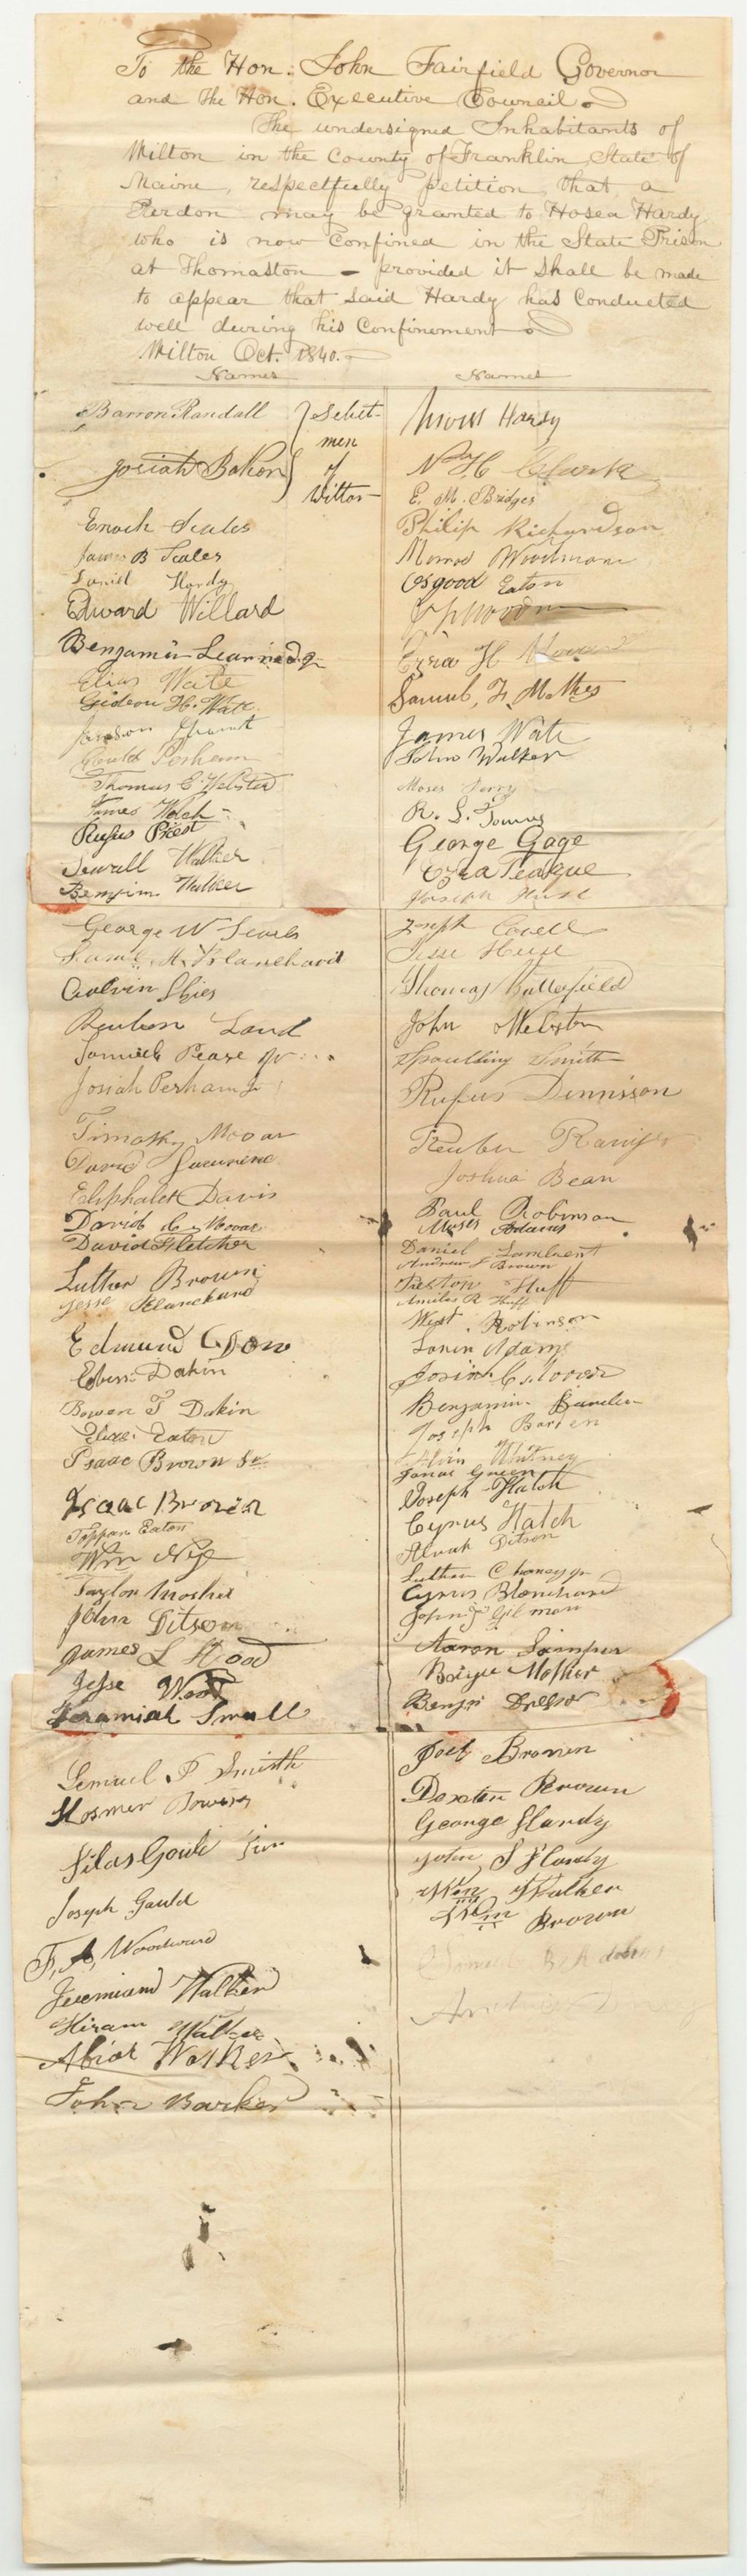 To the Hon. John Fairfield Governor
and the Hon. Executive Council.
The undersigned Inhabitants of
Wilton in the County of Franklin State of
Maine, respectfully petition that a
Pardon may be granted to Hosea Hardy
who is now Confined in the State Prison
at Thomaston – provided it shall be made
to appear that said Hardy has Conducted
well during his Confinement
Wilton Oct. 1840.
Names
Barron Randall } Select-
men
Josiah Bakon of
Wilton
Enoch Scales
James B Scales
Daniel Hardy
Edward Willard
Benjamin Learned Jr
Elias Wate
Gideon H. Wate
Gould Perham
Thomas C. Webster
James Welch
Rufus Priest
Sewall Walker
Benjim Walker
George W Searls
Saml. H. Blanchard
Calvin
Reuben Land
Samuel Pease Jr
Josiah Perham Jr
Timothy Mooar
David
Eliphalet Davis
David Mooar
David Fletcher
Luther Brown
Jesse Blanchard
Edmund Dow
Eben Dakin
Bowen T Dakin
Eaton
Isaac Brown Sr
Isaac Brown
Toppan Eaton
Wm Nye
Taylor Mosher
John Ditson
James L Hood
Jesse Wood
Jeramiah Small
Lemuel F Smith
Hosmer Powers
Silas Gould Jun
Joseph Gould
F. A. Woodward
Jeremiand Walker
Hiram Walker
Abiar Walker
John Barker
Names
Moses Hardy
N H Clark
E. M. Bridges
Philip Richardson
Monroe Woodman
Osgood Eaton
Ezra H
Samuel F.
James Wate
John Walker
Moses Perry
R. S. Towns
George Gage
Ezra Teague
Joseph Huse
Joseph Covell
Jesse Huse
Thomas Butterfield
John Webster
Spaulding Smith
Rufus Dennison
Reuben
Joshua Bean
Paul Robinson
Moses Adams
Daniel Lambert
Andrew J Brown
Preston Huff
Amilas R Huff
West Robinson
Loren Adams
Josiah
Benjamin
Joseph
Alvin Whitney
Jonas Green
Joseph Hatch
Cyrus Hatch
Alvah Ditson
Luther Chaney Jr
Cyrus Blanchard
John J Gilman
Aaron
Mosher
Benjn Dresser
Joel Brown
Dexter Brown
George Hardy
John S Hardy
Wm Walker
Wm Brown